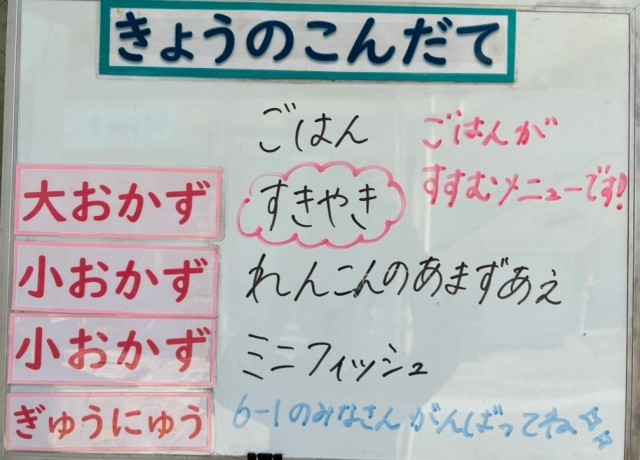 きょうのこんだて
ごはん
ごはんが
すすむメニューです!
大おかず すきやき
小おかず れんこんのあまずあえ
小おかず ミニフィッシュ
ぎゅうにゅう 6-1のみなさんがんばってね